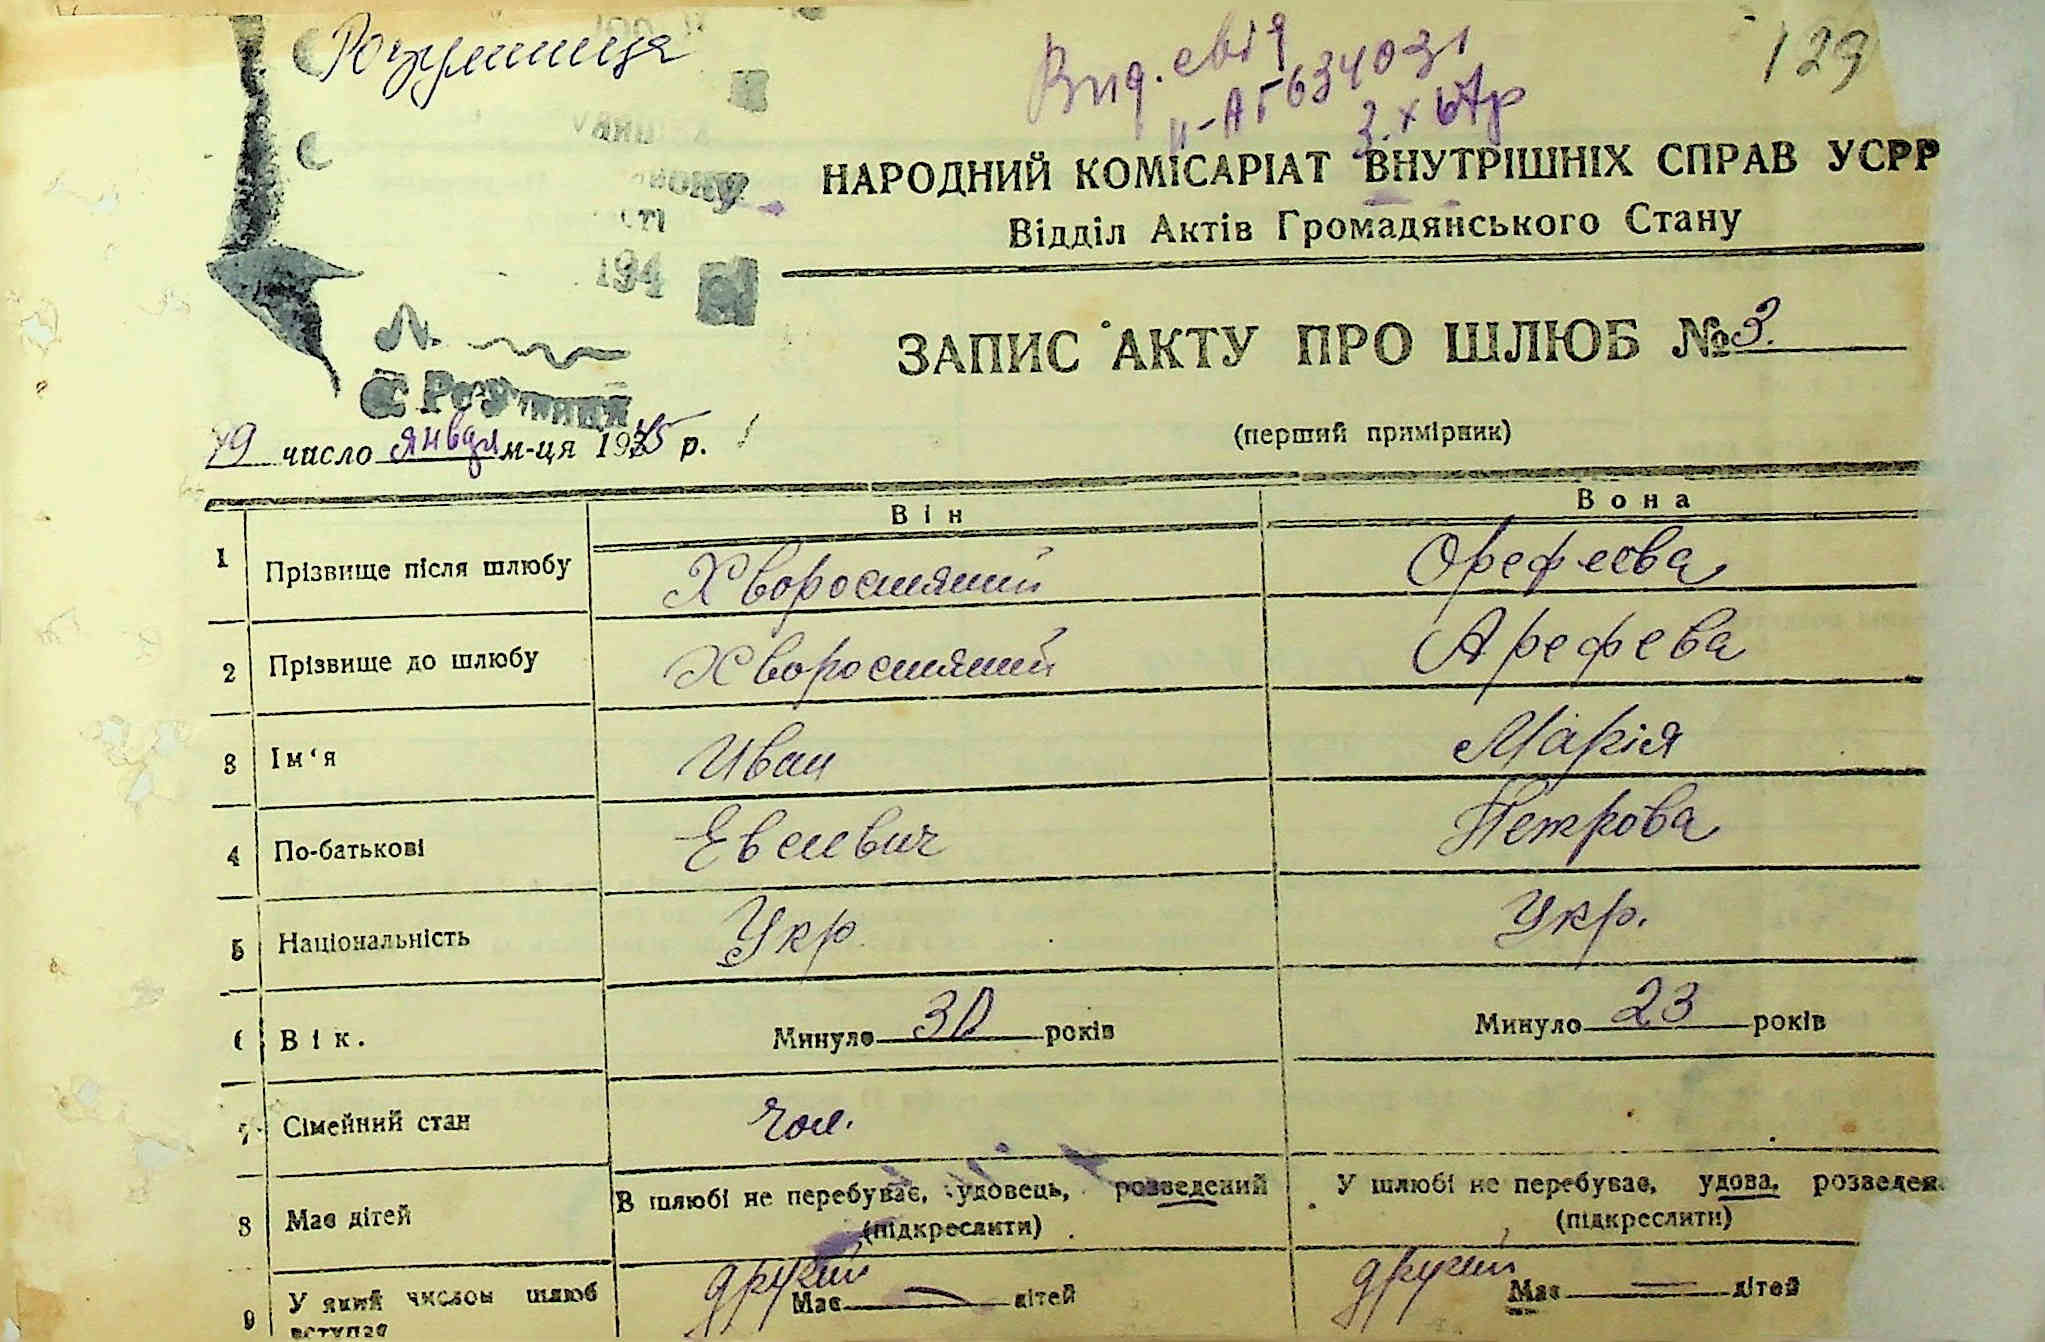 Розумниця
129
Вид. свід
II-АГ 634031
3.X 67р
НАРОДНИЙ КОМІСАРІАТ ВНУТРІШНІХ СПРАВ УСРР
Відділ Актів Громадянського Стану
194
ЗАПИС АКТУ ПРО ШЛЮБ № 3.
(перший примірник)
с. Розумниця
19 число января м-ця 1945 р.
Він Вона
1 Прізвище після шлюбу Хворостяний Орефєєва
2 Прізвище до шлюбу Хворостяний Арефева
3 Ім'я Иван Марія
4 По-батькові Евсевич Петрова
5 Національність Укр Укр.
6 Вік. Минуло 30 років Минуло 23 років
7 Сімейний стан чол.
8 Має дітей В шлюбі не перебуває, удовець, розведений У шлюбі не перебуває, удова, розведен
(підкреслити) (підкреслити)
9 У який числом шлюб вступає другий Має — дітей другий Має — дітей